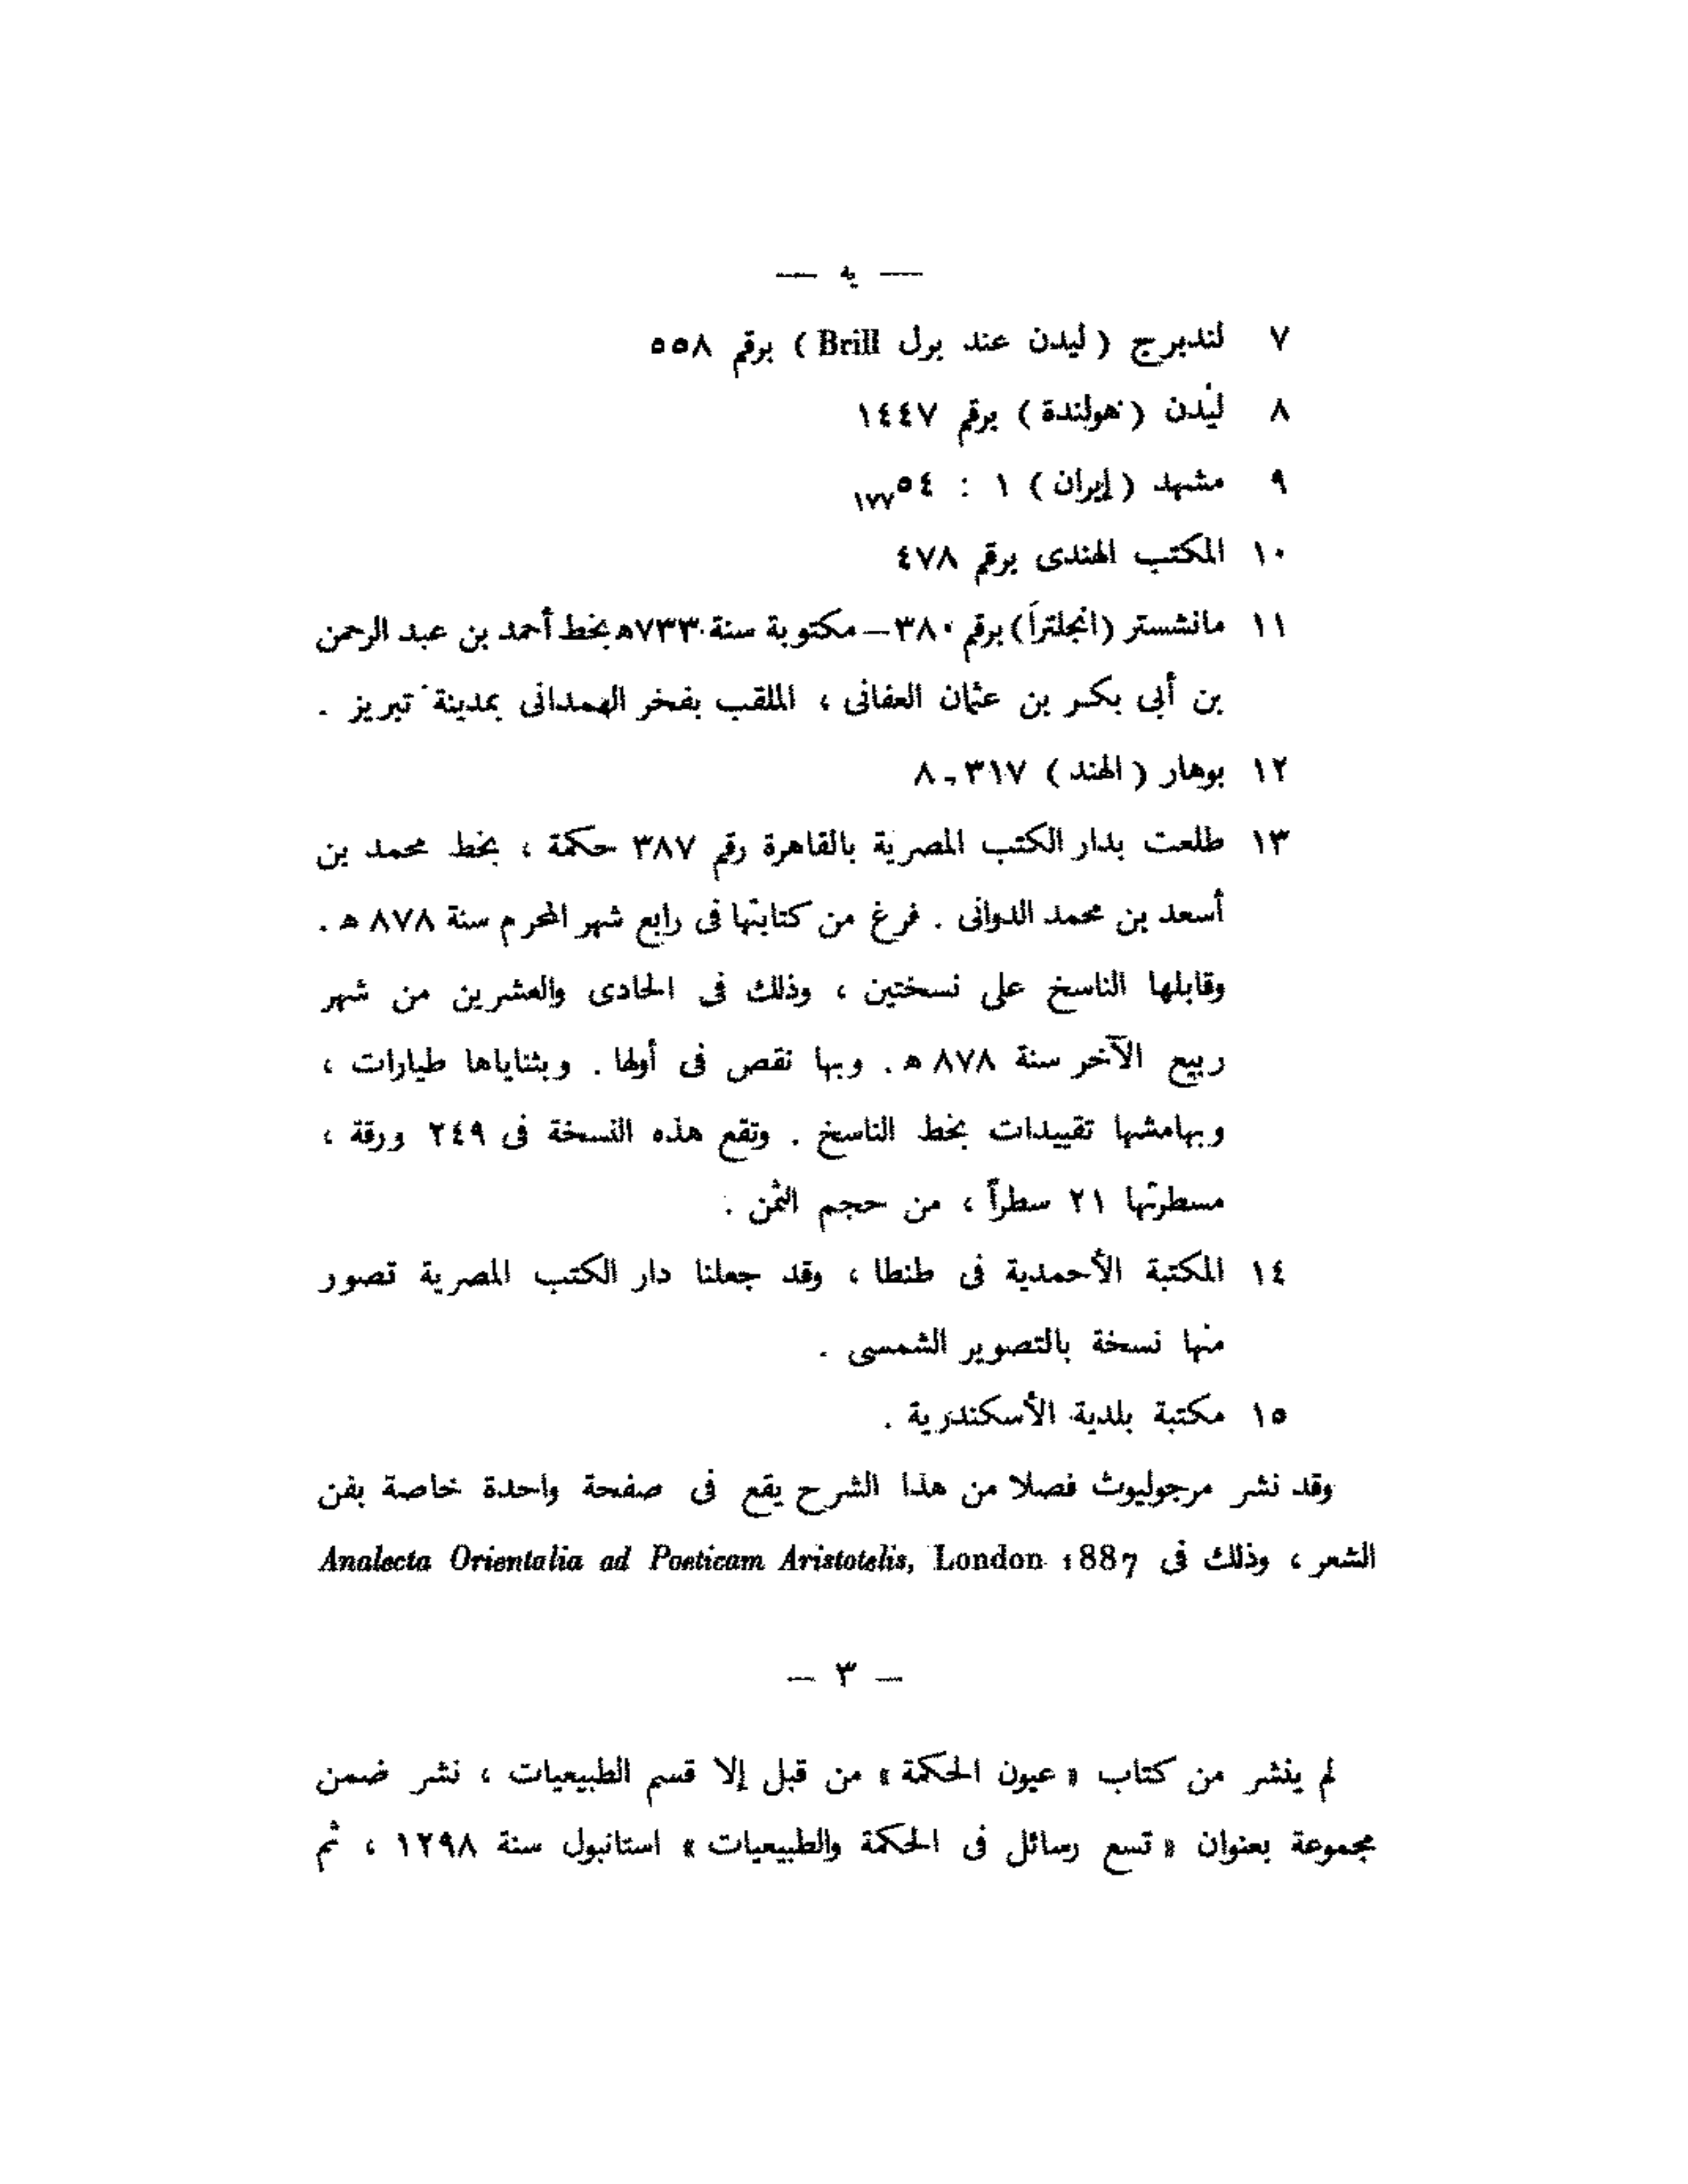 — يه —
٧ لندبرج ( ليدن عند برل Brill ) برقم ٥٥٨
٨ ليدن ( هولندة ) برقم ١٤٤٧
٩ مشهد ( إيران ) ١ : ٥٤ ١٧٧
١٠ المكتب الهندى برقم ٤٧٨
١١ مانشستر (انجلترا) برقم ٣٨٠ – مكتوبة سنة ٧٣٣ ه بخط أحمد بن عبد الرحمن
بن أبى بكر بن عثمان العفانى ، الملقب بفخر الهمدانى بمدينة تبريز .
١٢ بوهار ( الهند ) ٣١٧ - ٨
١٣ طلعت بدار الكتب المصرية بالقاهرة رقم ٣٨٧ حكمة ، بخط محمد بن
أسعد بن محمد الدوانى . فرغ من كتابتها فى رابع شهر المحرم سنة ٨٧٨ ه .
وقابلها الناسخ على نسختين ، وذلك فى الحادى والعشرين من شهر
ربيع الآخر سنة ٨٧٨ ه . وبها نقص فى أولها . وبثناياها طيارات ،
وبهامشها تقييدات بخط الناسخ . وتقع هذه النسخة فى ٢٤٩ ورقة ،
مسطرتها ٢١ سطراً ، من حجم الثمن .
١٤ المكتبة الأحمدية فى طنطا ، وقد جعلنا دار الكتب المصرية تصور
منها نسخة بالتصوير الشمسى .
١٥ مكتبة بلدية الأسكندرية .
وقد نشر مرجوليوث فصلا من هذا الشرح يقع فى صفحة واحدة خاصة بفن
الشعر ، وذلك فى Analecta Orientalia ad Poeticam Aristotelis, London 1887
– ٣ –
لم ينشر من كتاب « عيون الحكمة » من قبل إلا قسم الطبيعيات ، نشر ضمن
مجموعة بعنوان « تسع رسائل فى الحكمة والطبيعيات » استانبول سنة ١٢٩٨ ، ثم